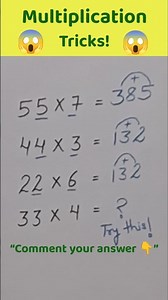 Multiplication
😱 Tricks! 😱
+
55 × 7 = 385
+
44 × 3 = 132
+
22 × 6 = 132
33 × 4 = ?
Try this!
"Comment your answer 👇"